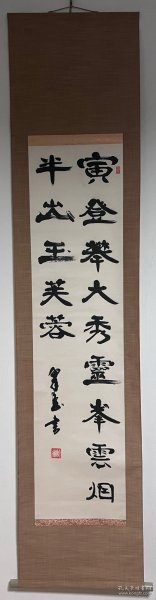 寅登攀大秀靈峯雲烟
半出玉芙蓉
書